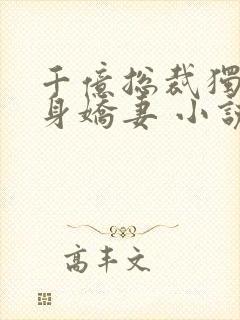 千億總裁獨
身嬌妻 小說
高丰文